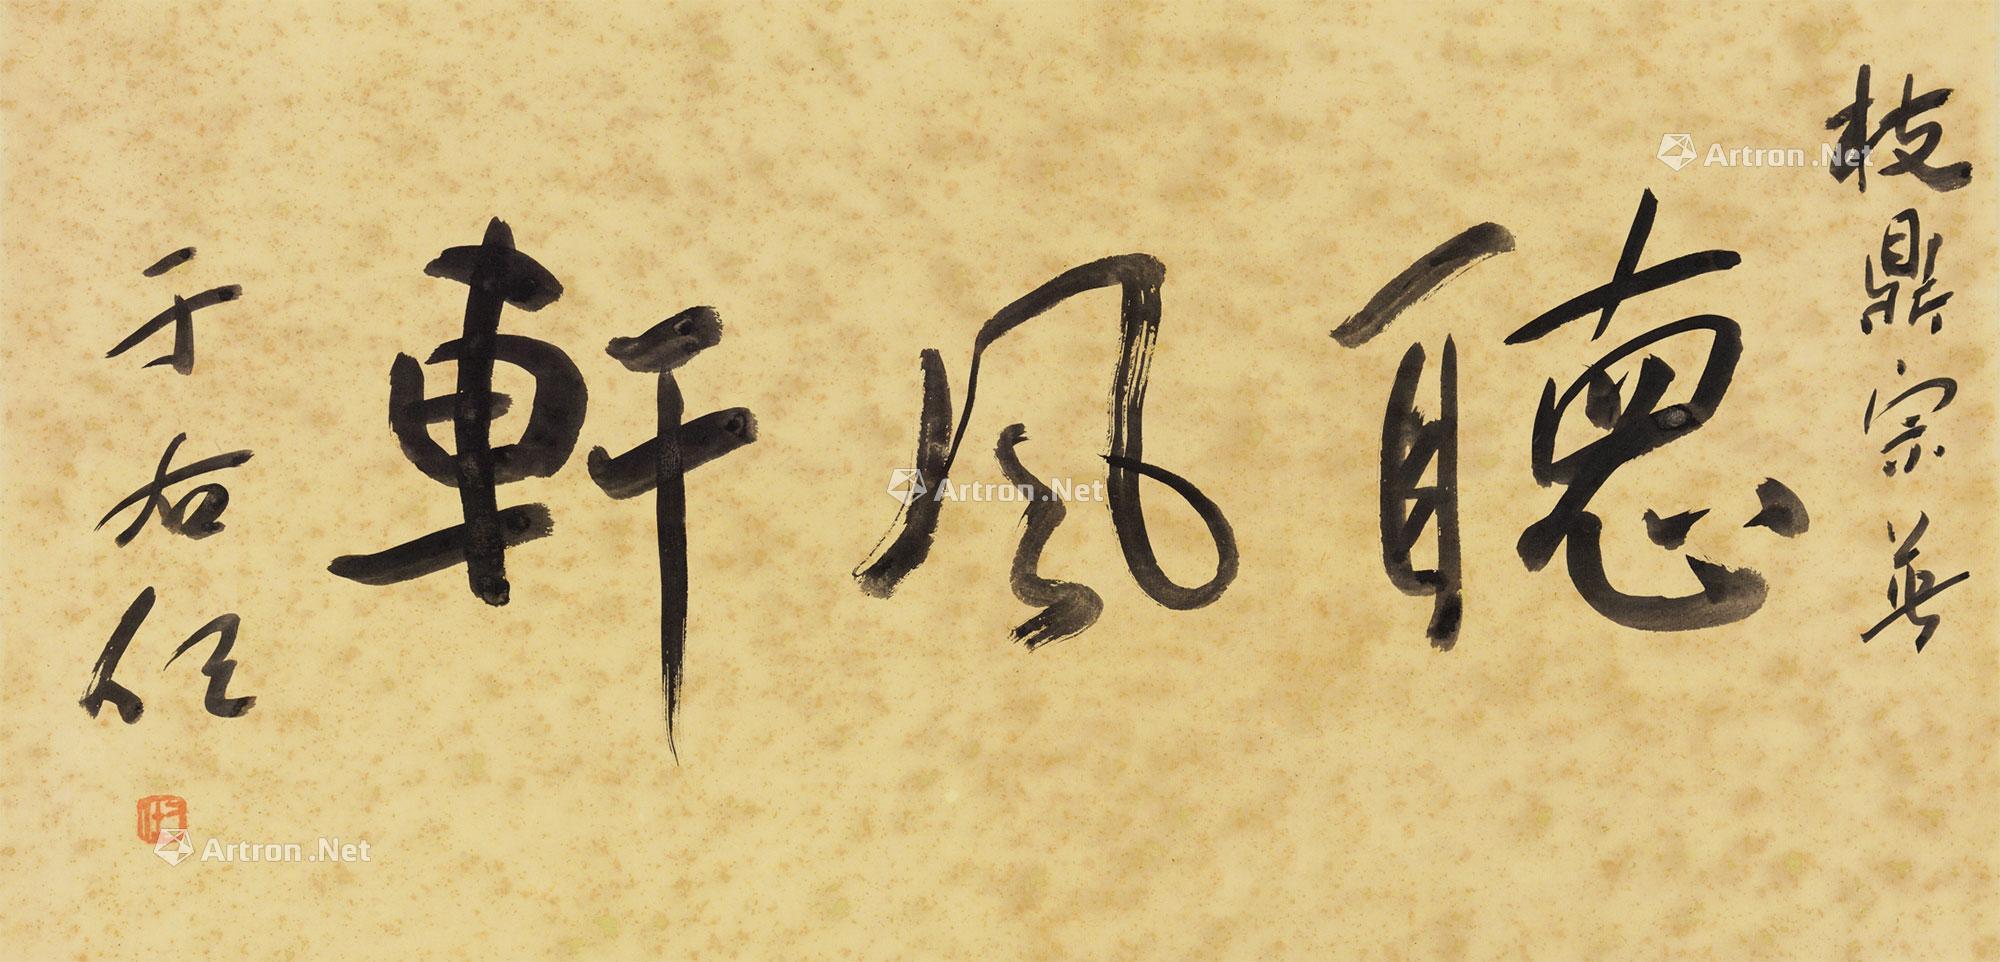 枝鼎宗英
聽風軒
于右任
Artron.Net
Artron.Net
Artron.Net